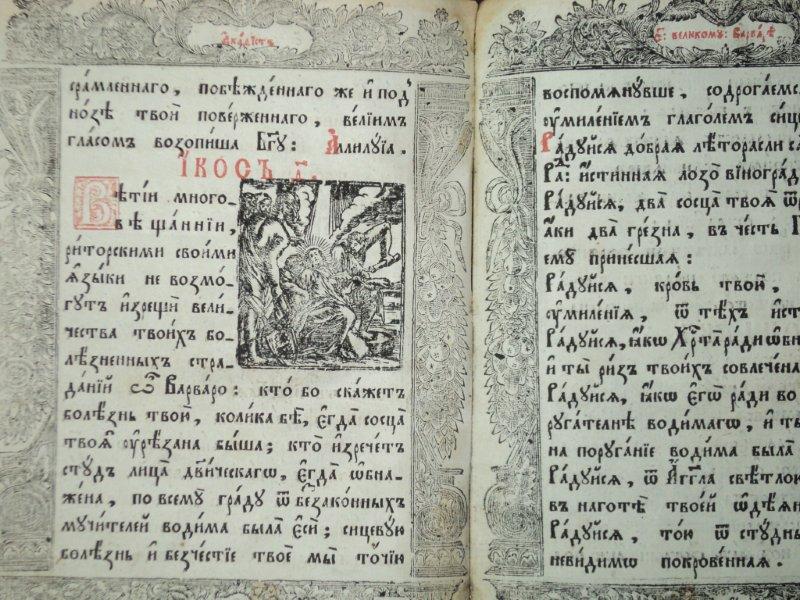 Акаѳїстъ
сра́мленнаго, побѣжде́ннаго же и҆ под̾
но́зѣ твои̑ пове́рженнаго, ве́лїимъ
гла́сомъ возопи́ша Бг҃ꙋ: Аллилꙋ́їа.
І҆́КОСЪ г҃.
Вѣті́и много-
вѣща́ннїи,
ри́торскими свои́ми
ꙗ҆зы̑ки не возмо́-
гꙋтъ и҆зрещѝ вели́-
чества твои́хъ бо-
лѣ́зненныхъ стра-
да́нїй ѽ Варва́ро: кто́ бо ска́жетъ
болѣ́знь твою̀, коли́ка бѣ̀, є҆гда̀ сосца̀
твоѧ̑ ᲂу҆рѣ́зана бы́ша; кто̀ и҆зрече́тъ
стꙋ́дъ лица̀ дв҃и́ческагѡ, є҆гда̀ ѡ҆бна-
же́на, по всемꙋ̀ гра́дꙋ ѿ беззако́нныхъ
мꙋчи́телей води́ма была̀ є҆сѝ; сицевꙋ́ю
болѣ́знь и҆ безче́стїе твоѐ мы̀ то́чїю
С: великомꙋ: Варва́рѣ
воспомѧнꙋ́вше, содрога́емсѧ
ᲂу҆миле́нїемъ глаго́лемъ сице
Ра́дꙋйсѧ до́браѧ лѣ́торасли са
Ра: и҆́стиннаѧ лозо̀ вїногра́д
Ра́дꙋйсѧ, два̀ сосца̀ твоѧ̑ ѿр
а҆́ки два̀ гре́зна, въ че́сть
є҆мꙋ̀ прине́сшаѧ:
Ра́дꙋйсѧ, кро́вь твою̀,
ᲂу҆миле́нїѧ, ѿ тѣ́хъ и҆ст
Ра́дꙋйсѧ, ꙗ҆́кѡ Хрⷭ҇та̀ ра́ди ѡ҆бна
и҆ ты̀ ри́зъ твои́хъ совлече́на
Ра́дꙋйсѧ, ꙗ҆́кѡ є҆гѡ̀ ра́ди во
рꙋга́телнѣ води́магѡ, и҆ ты
на порꙋга́нїе води́ма была̀
Ра́дꙋйсѧ, ѿ А҆́гг҃ла свѣ́тло
въ наготѣ̀ твое́й ѡ҆дѣѧ́н
Ра́дꙋйсѧ, то́ю ѿ стꙋ́дны
неви́димѡ покрове́ннаѧ.